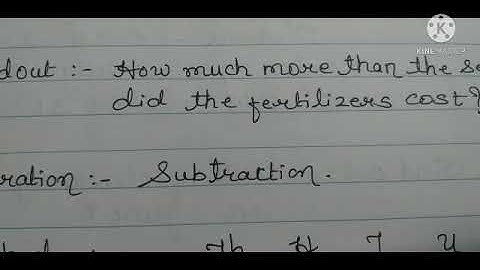 KINEMASTER
dout :- How much more than the se
did the fertilizers cost?
ration :- Subtraction.
Th H T U